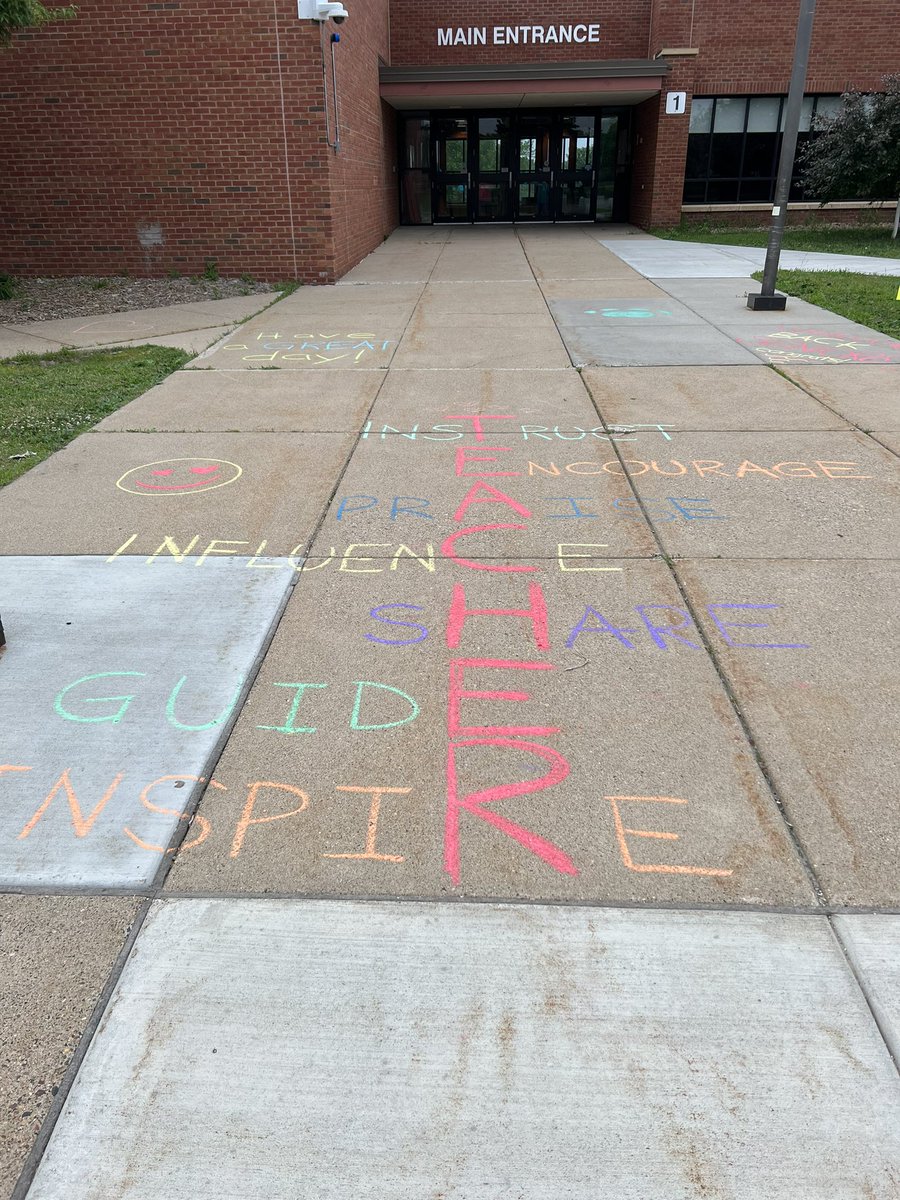 MAIN ENTRANCE
1
Have
a GREAT
day!
BACK
INSTRUCT
ENCOURAGE
PRAISE
INFLUENCE
SHARE
GUIDE
INSPIRE